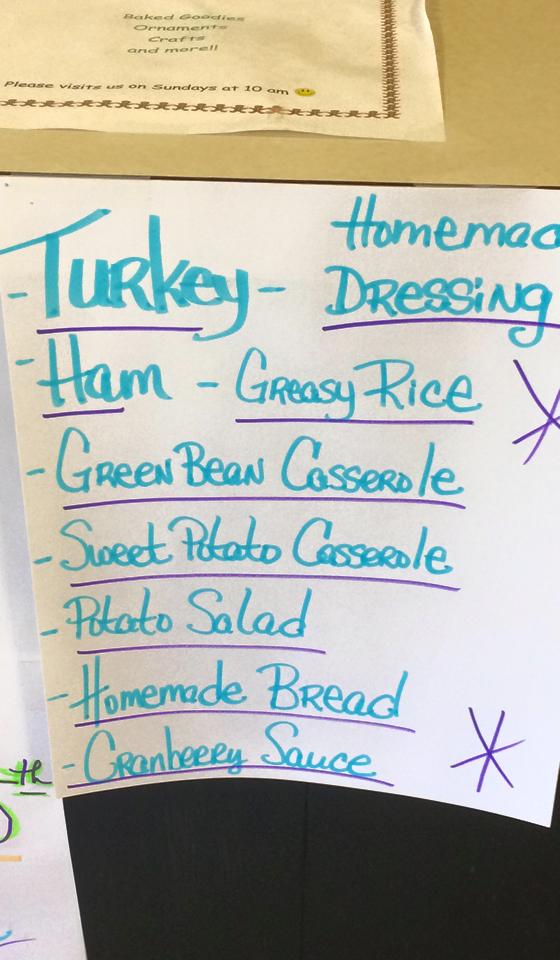 Baked Goodies
Ornaments
Crafts
and more!!
Please visits us on Sundays at 10 am
Homemad
- Turkey - Dressing
- Ham - Greasy Rice
- Green Bean Casserole
- Sweet Potato Casserole
- Potato Salad
- Homemade Bread
- Cranberry Sauce
th